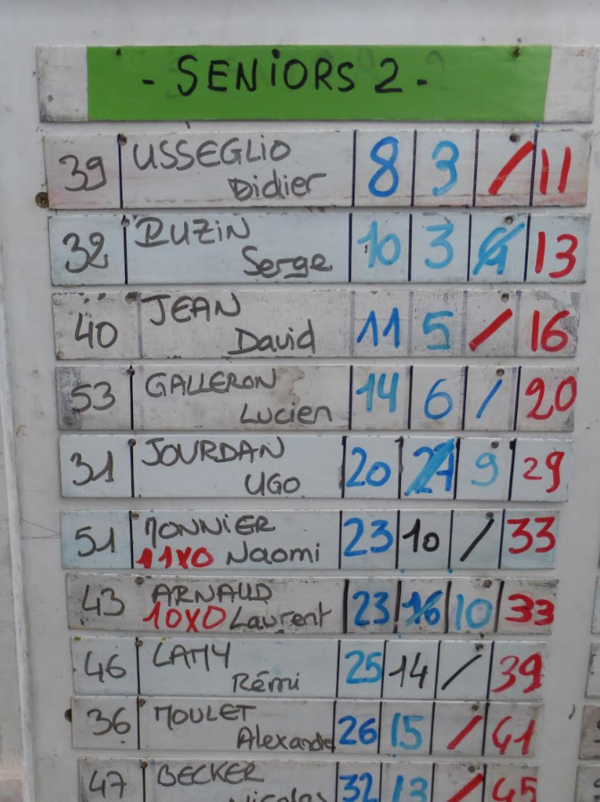 - SENIORS 2 -
39 USSEGLIO Didier 8 3 / 11
32 RUZIN Serge 10 3 13
40 JEAN David 11 5 / 16
53 GALLERON Lucien 14 6 / 20
31 JOURDAN UGO 20 9 29
51 MONNIER 11X0 Naomi 23 10 / 33
43 ARNAUD 10X0 Laurent 23 16 10 33
46 LAMY Rémi 25 14 / 39
36 MOULET Alexandre 26 15 / 41
47 BECKER Nicolas 32 13 / 45